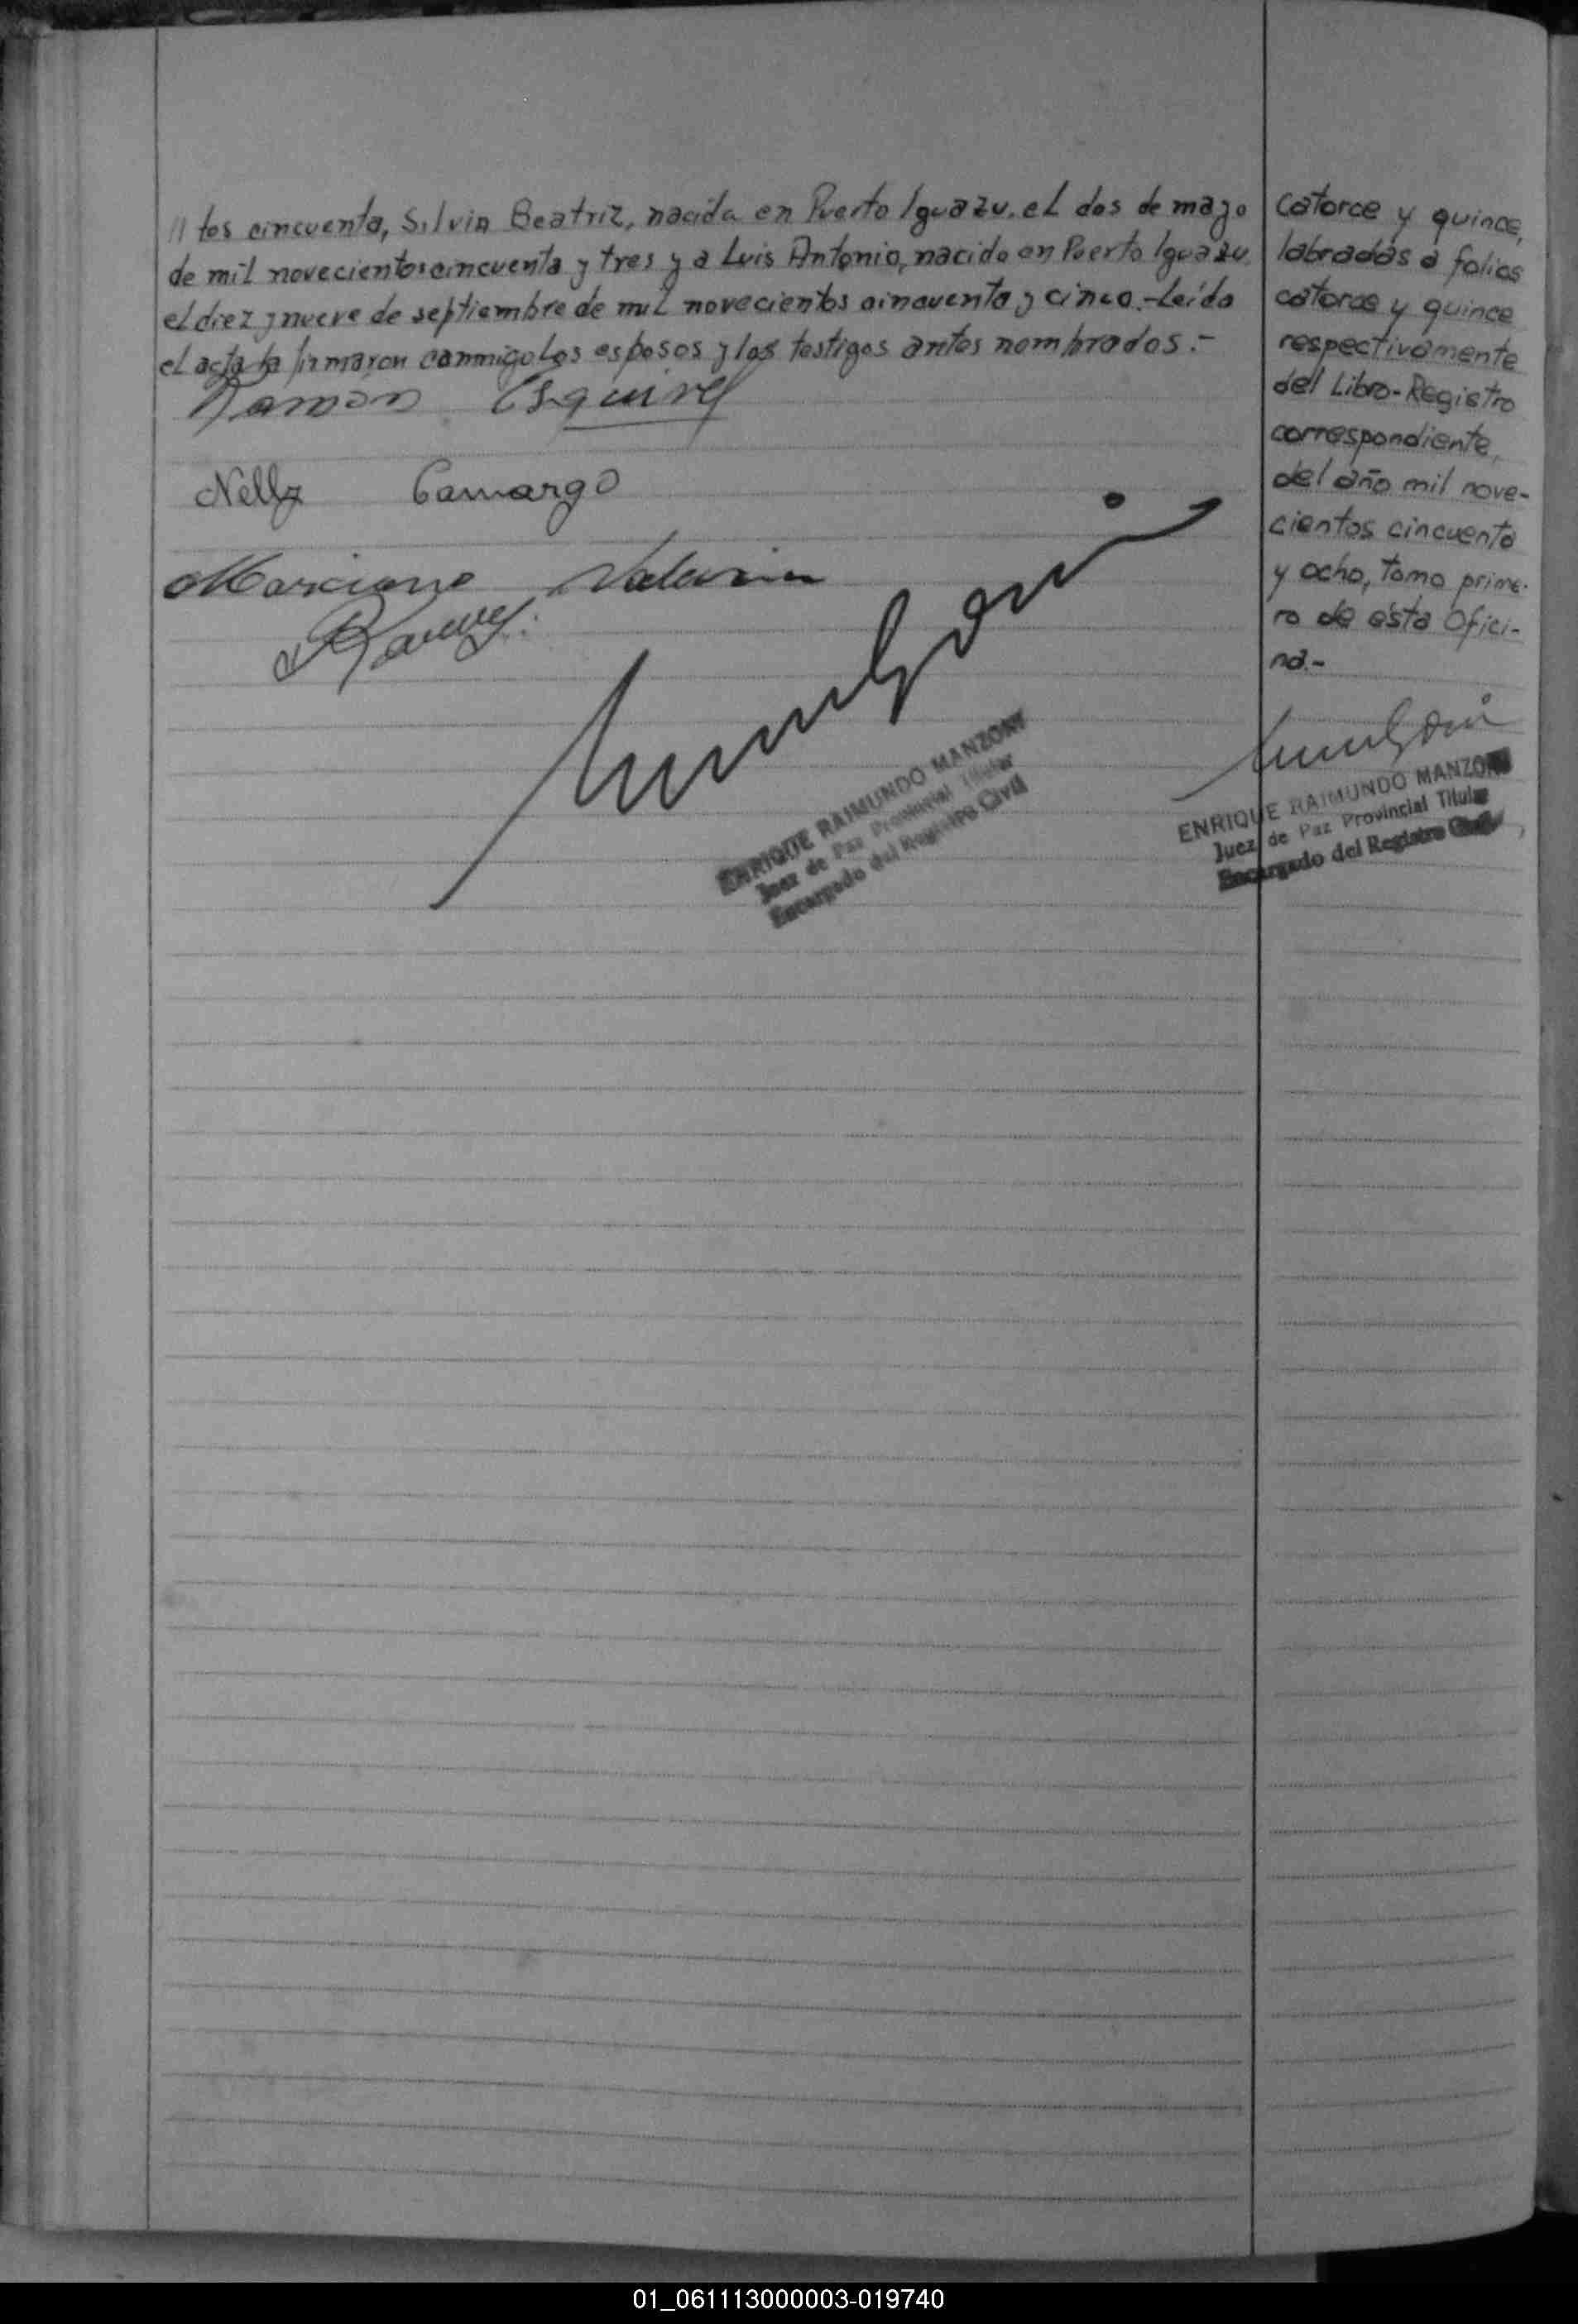 // tos cincuenta, Silvia Beatriz, nacida en Puerto Iguazu, el dos de mayo
de mil novecientos cincuenta y tres y a Luis Antonio, nacido en Puerto Iguazu
el diez y nueve de septiembre de mil novecientos cincuenta y cinco.- Leída
el acta la firmaron conmigo los esposos y los testigos antes nombrados.-
Ramón Esquivel
Nelly Camargo
Marciano
ENRIQUE RAIMUNDO MANZONI
Juez de Paz Provincial Titular
Encargado del Registro Civil
catorce y quince,
labradas a folios
catorce y quince
respectivamente
del Libro-Registro
correspondiente,
del año mil nove-
cientos cincuenta
y ocho, tomo prime-
ro de ésta Ofici-
na.-
ENRIQUE RAIMUNDO MANZONI
Juez de Paz Provincial Titular
Encargado del Registro Civil
01_061113000003-019740